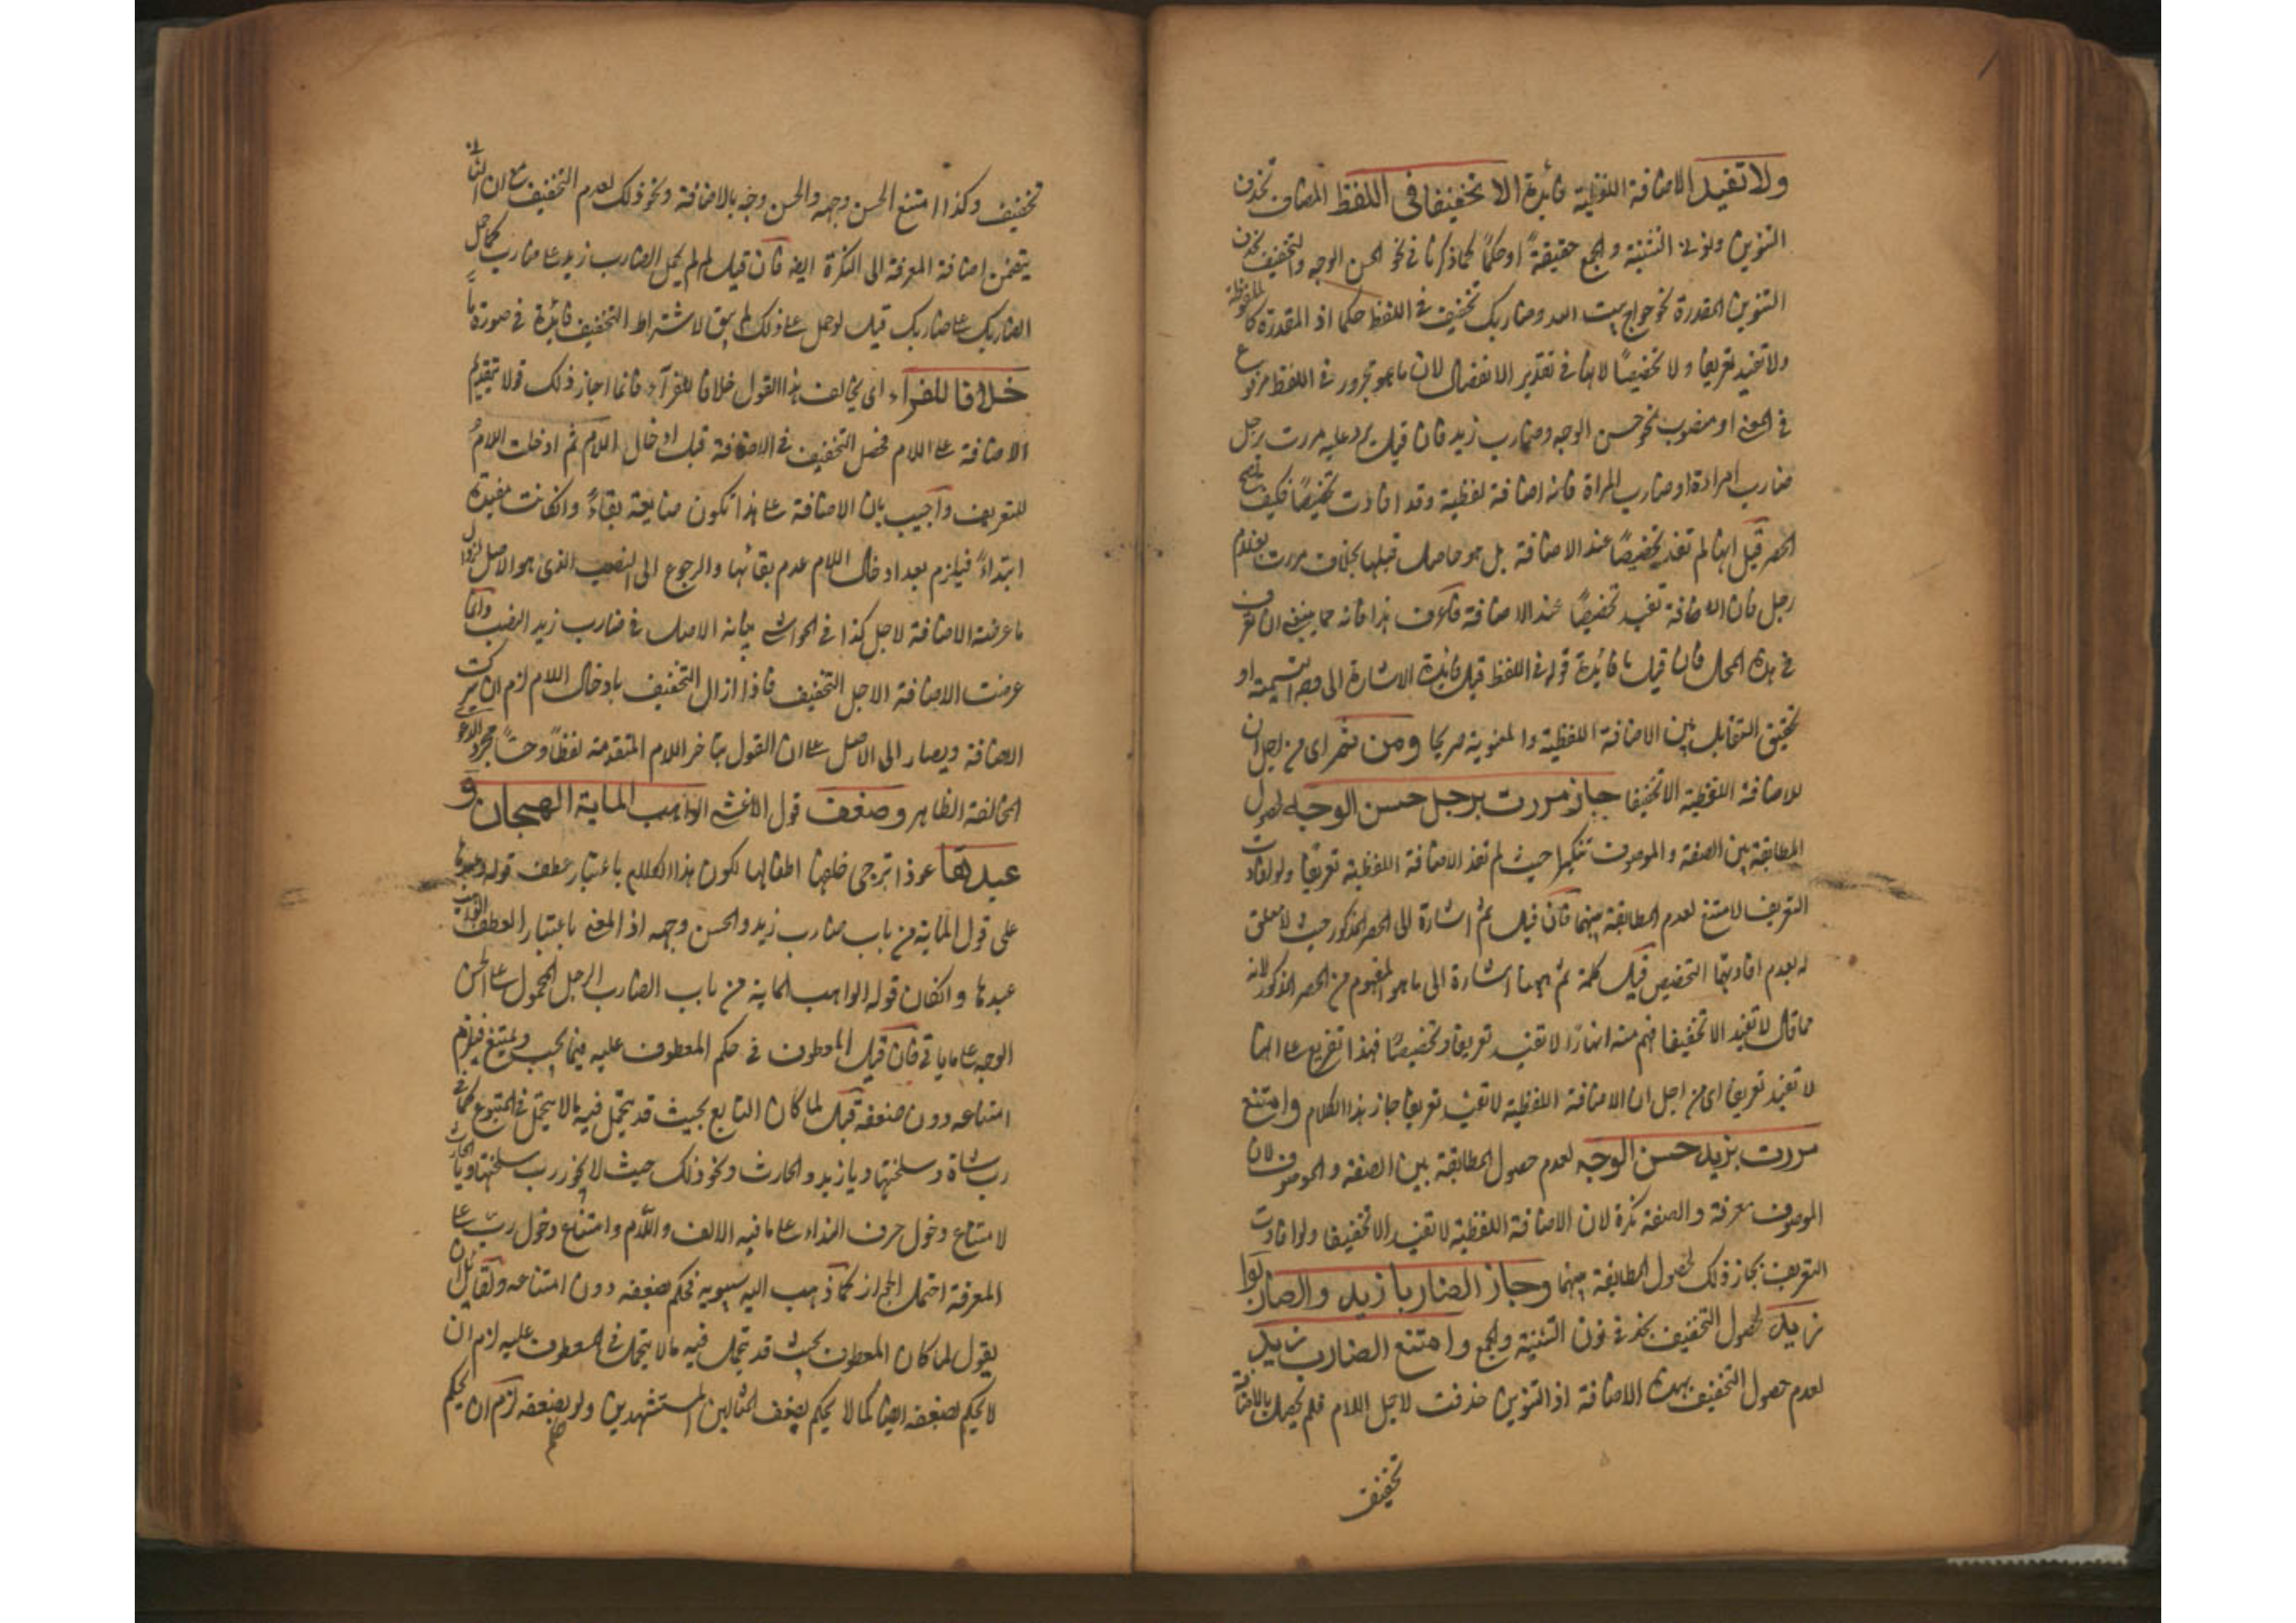 ولا تفيد الاضافة اللفظية فائدة الا تخفيفا فى اللفظ المضاف بحذف
التنوين ونونى التثنية والجمع حقيقةً او حكمًا كما ذكرنا فى نحو الحسن الوجه والتخفيف بحذف
التنوين المقدرة نحو حواج بيت الله وضاربك تخفيف فى اللفظ حكما اذ المقدرة كالملفوظة
ولا تفيد تعريفا ولا تخصيصًا لانها فى تقدير الانفصال لان ما هو مجرور فى اللفظ مرفوع
فى المعنى او منصوب نحو حسن الوجه وضارب زيد فان قيل يرد عليه مررت برجل
ضارب امراءة او ضارب المراة فانه اضافة لفظية وقد افادت تخصيصًا فكيف يصح
الحصر قيل انها لم تفد تخصيصًا عند الاضافة بل هو حاصل قبلها بخلاف مررت بغلام
رجل فان الاضافة تفيد تخصيصًا عند الاضافة فاعرف هذا فانه مما ينبغى ان تعرف
فى هذه المحل فان قيل ما فائدة قوله فى اللفظ قيل فائدة الاشارة الى وجه التسمية او
تحقيق التقابل بين الاضافة اللفظية والمعنوية صريحا ومن ثم اى من اجل ان
للاضافة اللفظية الا تخفيفا جاز مررت برجل حسن الوجه لحصول
المطابقة بين الصفة والموصوف تنكيرا حيث لم تفد الاضافة اللفظية تعريفا ولو افادت
التعريف لامتنع لعدم المطابقة بينهما فان قيل ثم اشارة الى الحصر المذكور حيث لا تعلق
له بعدم افادتها التخصيص قيل كلمة ثم ههنا اشارة الى ما هو المفهوم من الحصر المذكور لانه
لما قال لا تفيد الا تخفيفا فهم منه انها لا تفيد تعريفا وتخصيصًا فهذا تفريع على انها
لا تفيد تعريفا اى من اجل ان الاضافة اللفظية لا تفيد تعريفا جاز هذا الكلام وامتنع
مررت بزيد حسن الوجه لعدم حصول المطابقة بين الصفة والموصوف لان
الموصوف معرفة والصفة نكرة لان الاضافة اللفظية لا تفيد الا تخفيفا ولو افادت
التعريف لجاز ذلك لحصول المطابقة بينهما وجاز الضاربا زيد والضاربوا
زيد لحصول التخفيف بحذف نون التثنية والجمع وامتنع الضارب زيد
لعدم حصول التخفيف بهذه الاضافة اذ التنوين حذفت لاجل اللام فلم يحصل بالاضافة
تخفيف
تخفيف وكذا امتنع الحسن وجهه والحسن وجه بالاضافة ونحو ذلك لعدم التخفيف مع ان الثانى
يتضمن اضافة المعرفة الى النكرة ايضا فان قيل لم لم يحمل الضارب زيد على ضارب كما حمل
الضاربك على ضاربك قيل لو حمل على ذلك لم يبق لاشتراط التخفيف فائدة فى صورة ما
خلافا للفراء اى يخالف هذا القول خلافا للفراء فانما اجاز ذلك قولا بتقديم
الاضافة على اللام فحصل التخفيف فى الاضافة قبل ادخال اللام ثم ادخلت اللام
للتعريف واجيب بان الاضافة على هذا تكون ضايعة بقاءً وان كانت مفيدة
ابتداءً فيلزم بعد ادخال اللام عدم بقائها والرجوع الى النصب الذى هو الاصل لزوال
ما عرضت الاضافة لاجل كذا فى الحواشى بيانه الاصل فى ضارب زيد النصب وانما
عرضت الاضافة لاجل التخفيف فاذا زال التخفيف بادخال اللام لزم ان يترك
الاضافة ويصار الى الاصل على ان القول بتاخر اللام المتقدمة لفظًا وحسًا مجرد الدعوى
المخالفة الظاهر وضعف قول الاعشى الواهب الماية الهجان و
عبدها عوذا تزجى خلفها اطفالها لكون هذا الكلام باعتبار عطف قوله وعبدها
على قول الماية من باب ضارب زيد والحسن وجهه اذ المعنى باعتبار العطف الواهب
عبدها وان كان قوله الواهب الماية من باب الضارب الرجل المحمول على الحسن
الوجه على ما ياتى فان قيل المعطوف فى حكم المعطوف عليه فيما يجب ويمتنع فيلزم
امتناعه دون ضعفه قيل لما كان التابع بحيث قد يتحمل فيه ما لا يتحمل فى المتبوع كما فى
رب شاة وسخلتها ويا زيد والحارث ونحو ذلك حيث لا يجوز رب سخلتها ويا الحارث
لامتناع دخول حرف النداء على ما فيه الالف واللام وامتناع دخول رب على
المعرفة احتمل الجواز كما ذهب اليه سيبويه فحكم بضعفه دون امتناعه ولقائل ان
يقول لما كان المعطوف بحيث قد يتحمل فيه ما لا يتحمل فى المعطوف عليه لزم ان
لا يحكم بضعفه ايضا كما لا يحكم بضعف المثالين المستشهدين ولو بضعفه لزم ان يحكم